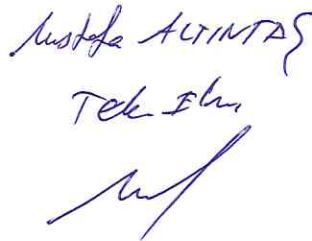 Mustafa ALTINTAŞ
Tek